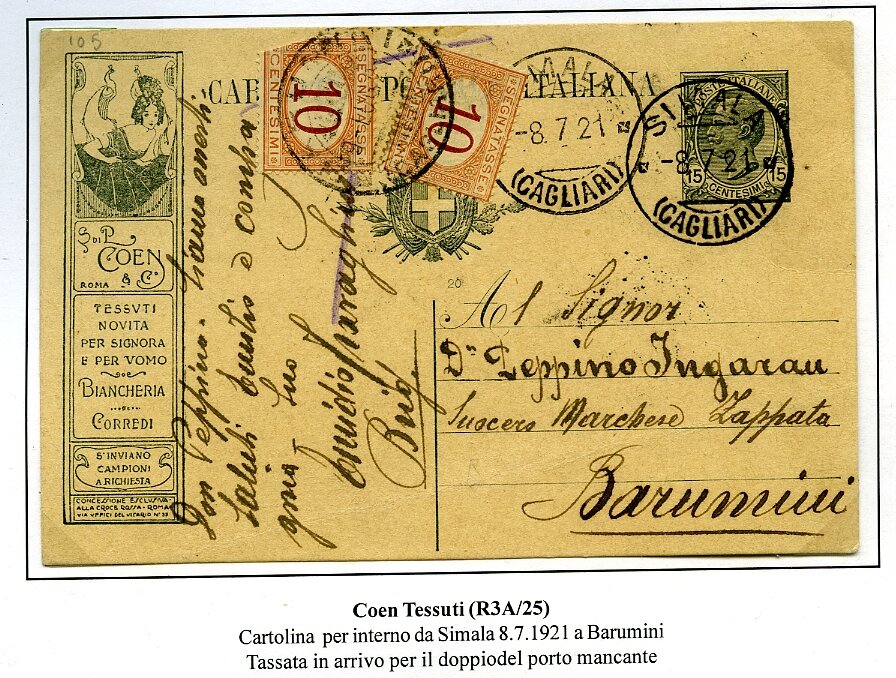 105
CARTOLINA POSTALE ITALIANA
SEGNATASSE
10
CENTESIMI
SEGNATASSE
10
CENTESIMI
SIMALA
-8.7.21
(CAGLIARI)
SIMALA
-8.7.21
(CAGLIARI)
15 15
CENTESIMI
S. DI P.
COEN
& Cº
ROMA
TESSVTI
NOVITA
PER SIGNORA
E PER VOMO
BIANCHERIA
CORREDI
S'INVIANO
CAMPIONI
A RICHIESTA
CONCESSIONE ESCLVSIVA
ALLA CROCE ROSSA - ROMA
VIA VFFICI DEL VICARIO Nº 35
Don Peppino - Siamo onesti-
Saluti
20
Al Signor
Dn Peppino Ingarau
Suocero Marchese Zappata
Barumini
Coen Tessuti (R3A/25)
Cartolina per interno da Simala 8.7.1921 a Barumini
Tassata in arrivo per il doppiodel porto mancante